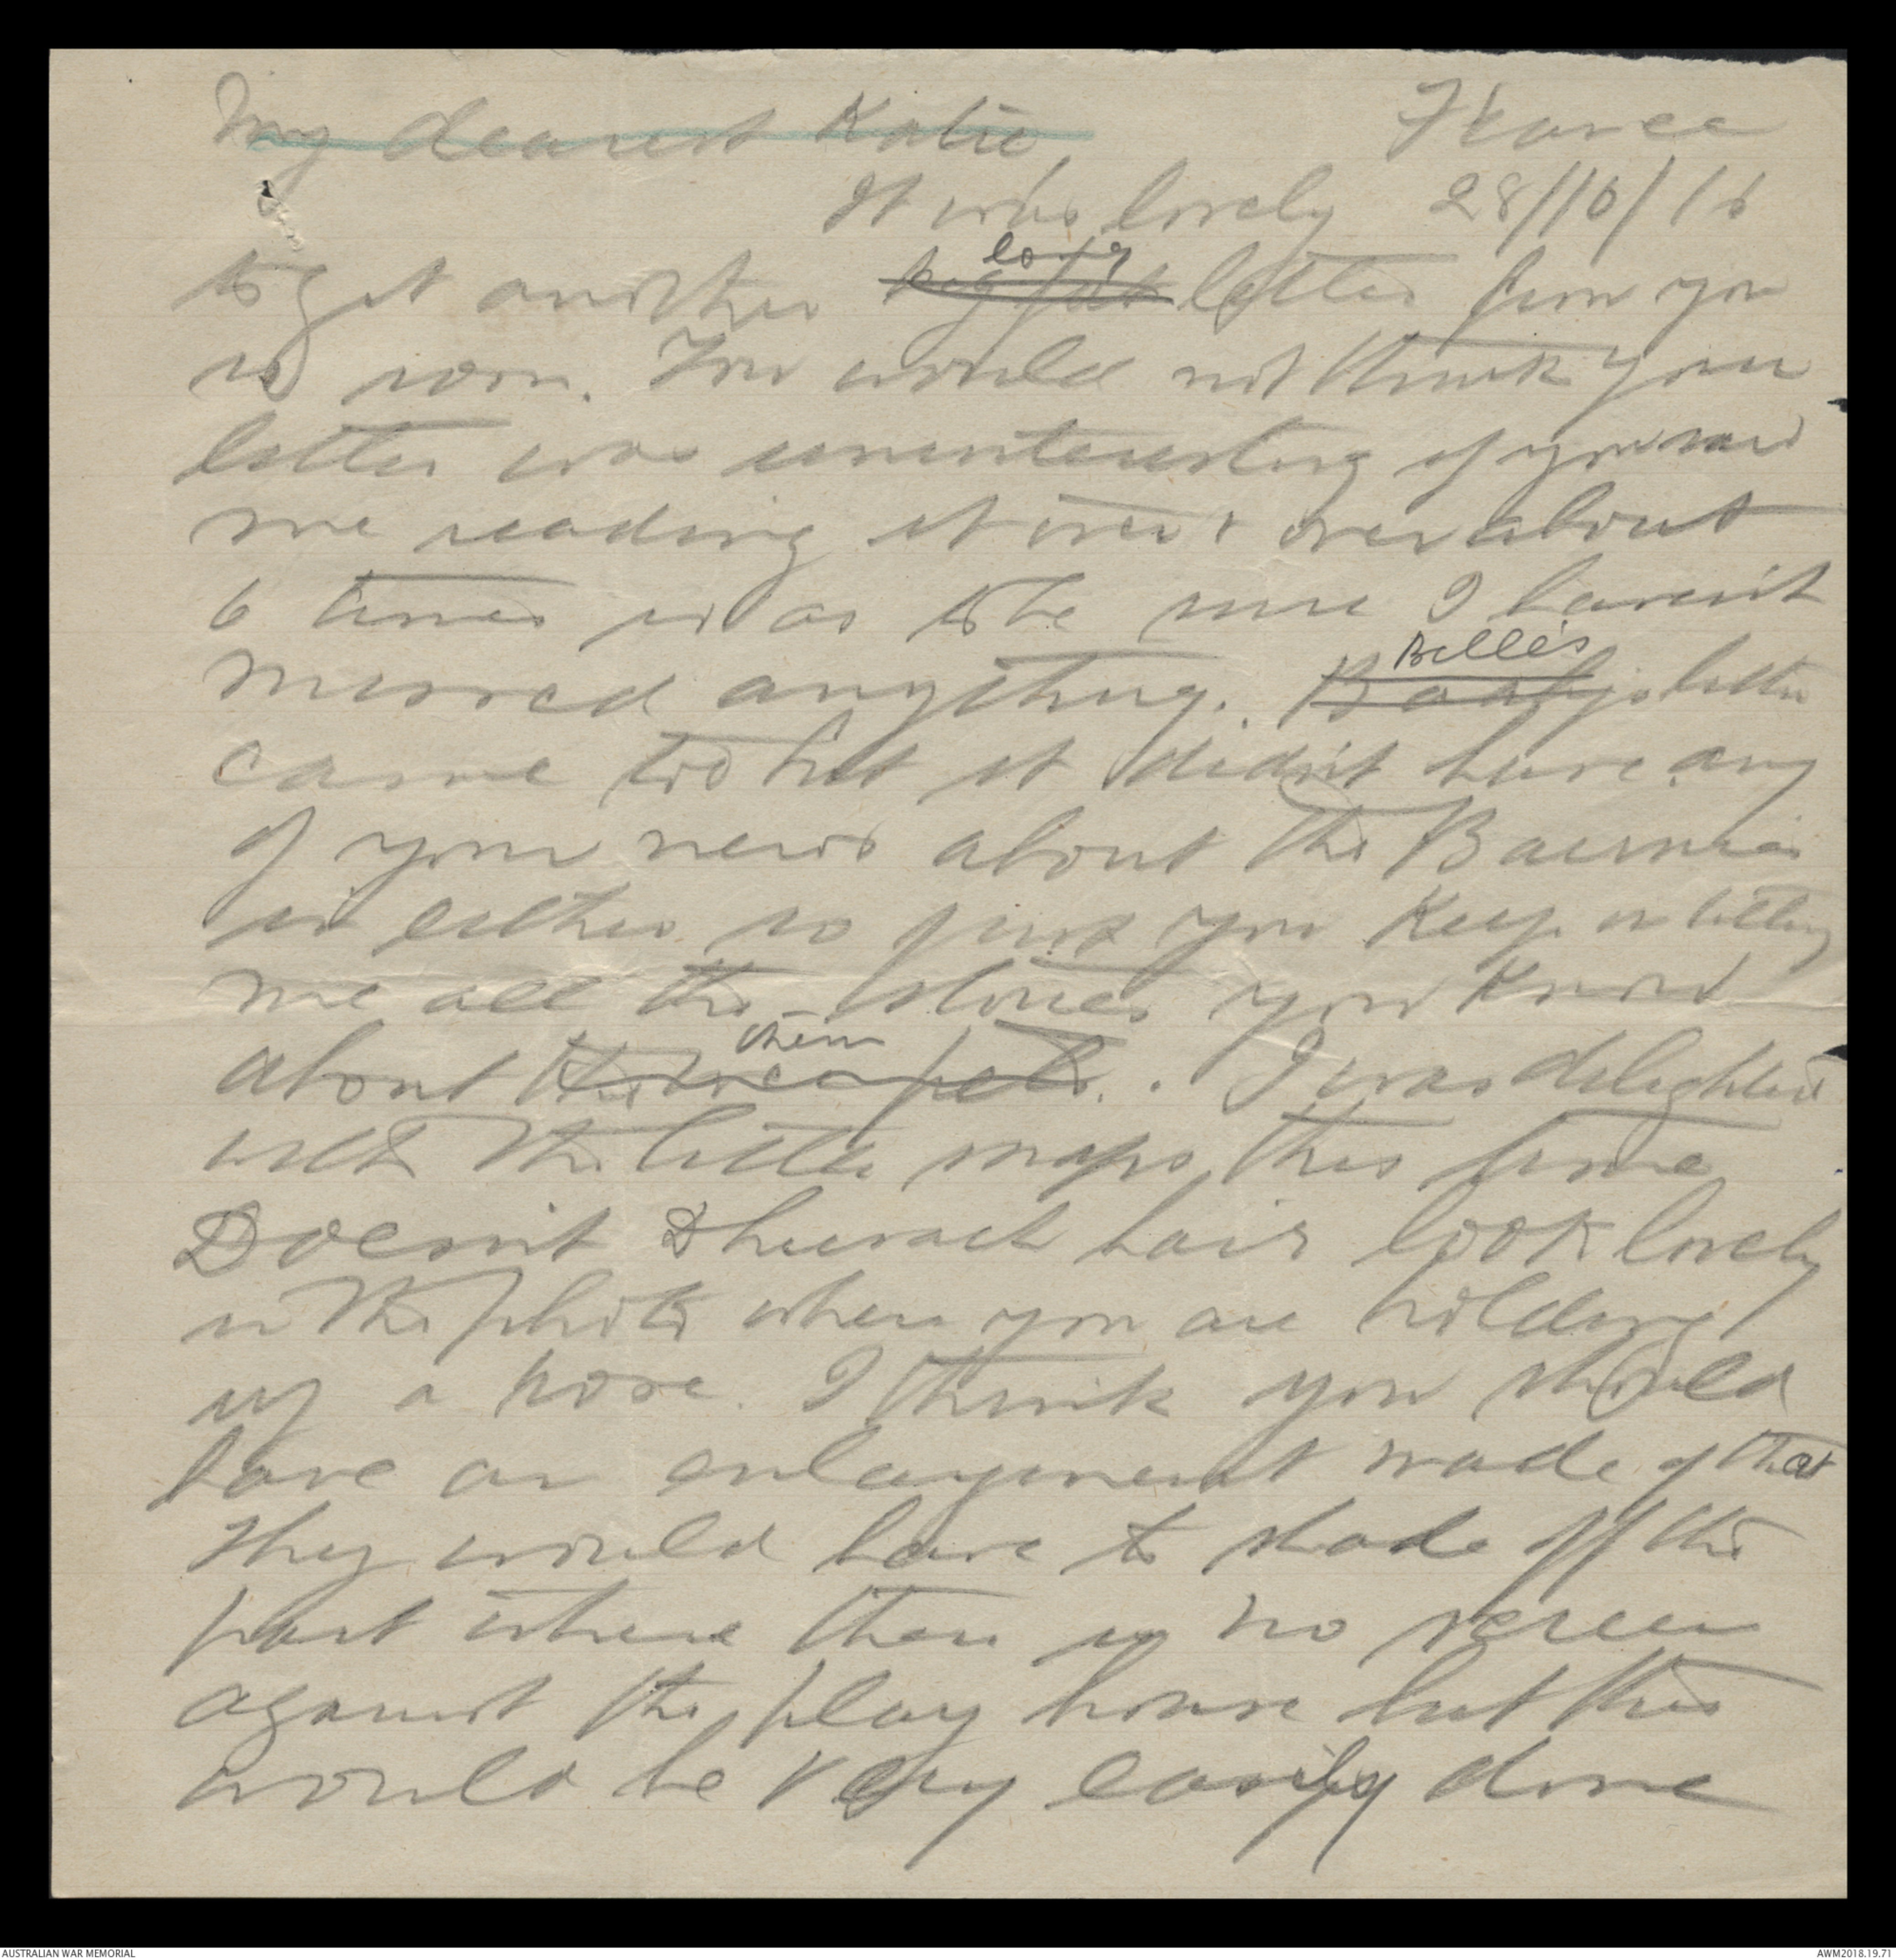 My dearest Katie, France
It was lovely 28/10/16
to get another big fat long letter from you
so soon. You would not think your
letter was uninteresting if you saw
me reading it over & over about
6 times so as to be sure I haven't
missed anything. Baaby's Bille's letter
came too but it didn't have any
of your news about the Bairnies
in either so just you keep on telling
me all the stories you know
about the wee pets. them. I was delighted
with the little snaps this time
Doesn't hair look lovely
in the photo where you are holding
up a rose. I think you should
have an enlargement made of that
They would have to shade off the
part where there is no screen
against the play house but this
would be very easily done
AUSTRALIAN WAR MEMORIAL AWM2018.19.71